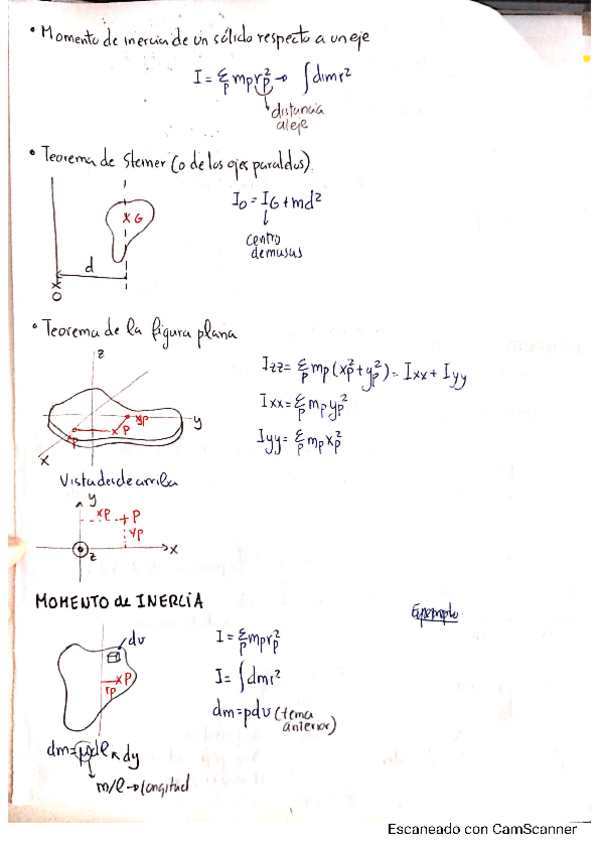 • Momento de inercia de un sólido respecto a un eje
I = Σp mp rp² → ∫dm r²
distancia al eje
• Teorema de Steiner (o de los ejes paralelos).
I₀ = IG + md²
centro de masas
x G
d
O
• Teorema de la figura plana
z
Izz = Σp mp (xp² + yp²) = Ixx + Iyy
Ixx = Σp mp yp²
Iyy = Σp mp xp²
yp
y
P
x
Vista desde arriba
y
xp
P
yp
x
z
MOMENTO de INERCIA
Ejemplo
dv
I = Σp mp rp²
xP
rp
I = ∫dm r²
dm = ρdv (tema anterior)
dm = dl dy
m/l → longitud
Escaneado con CamScanner